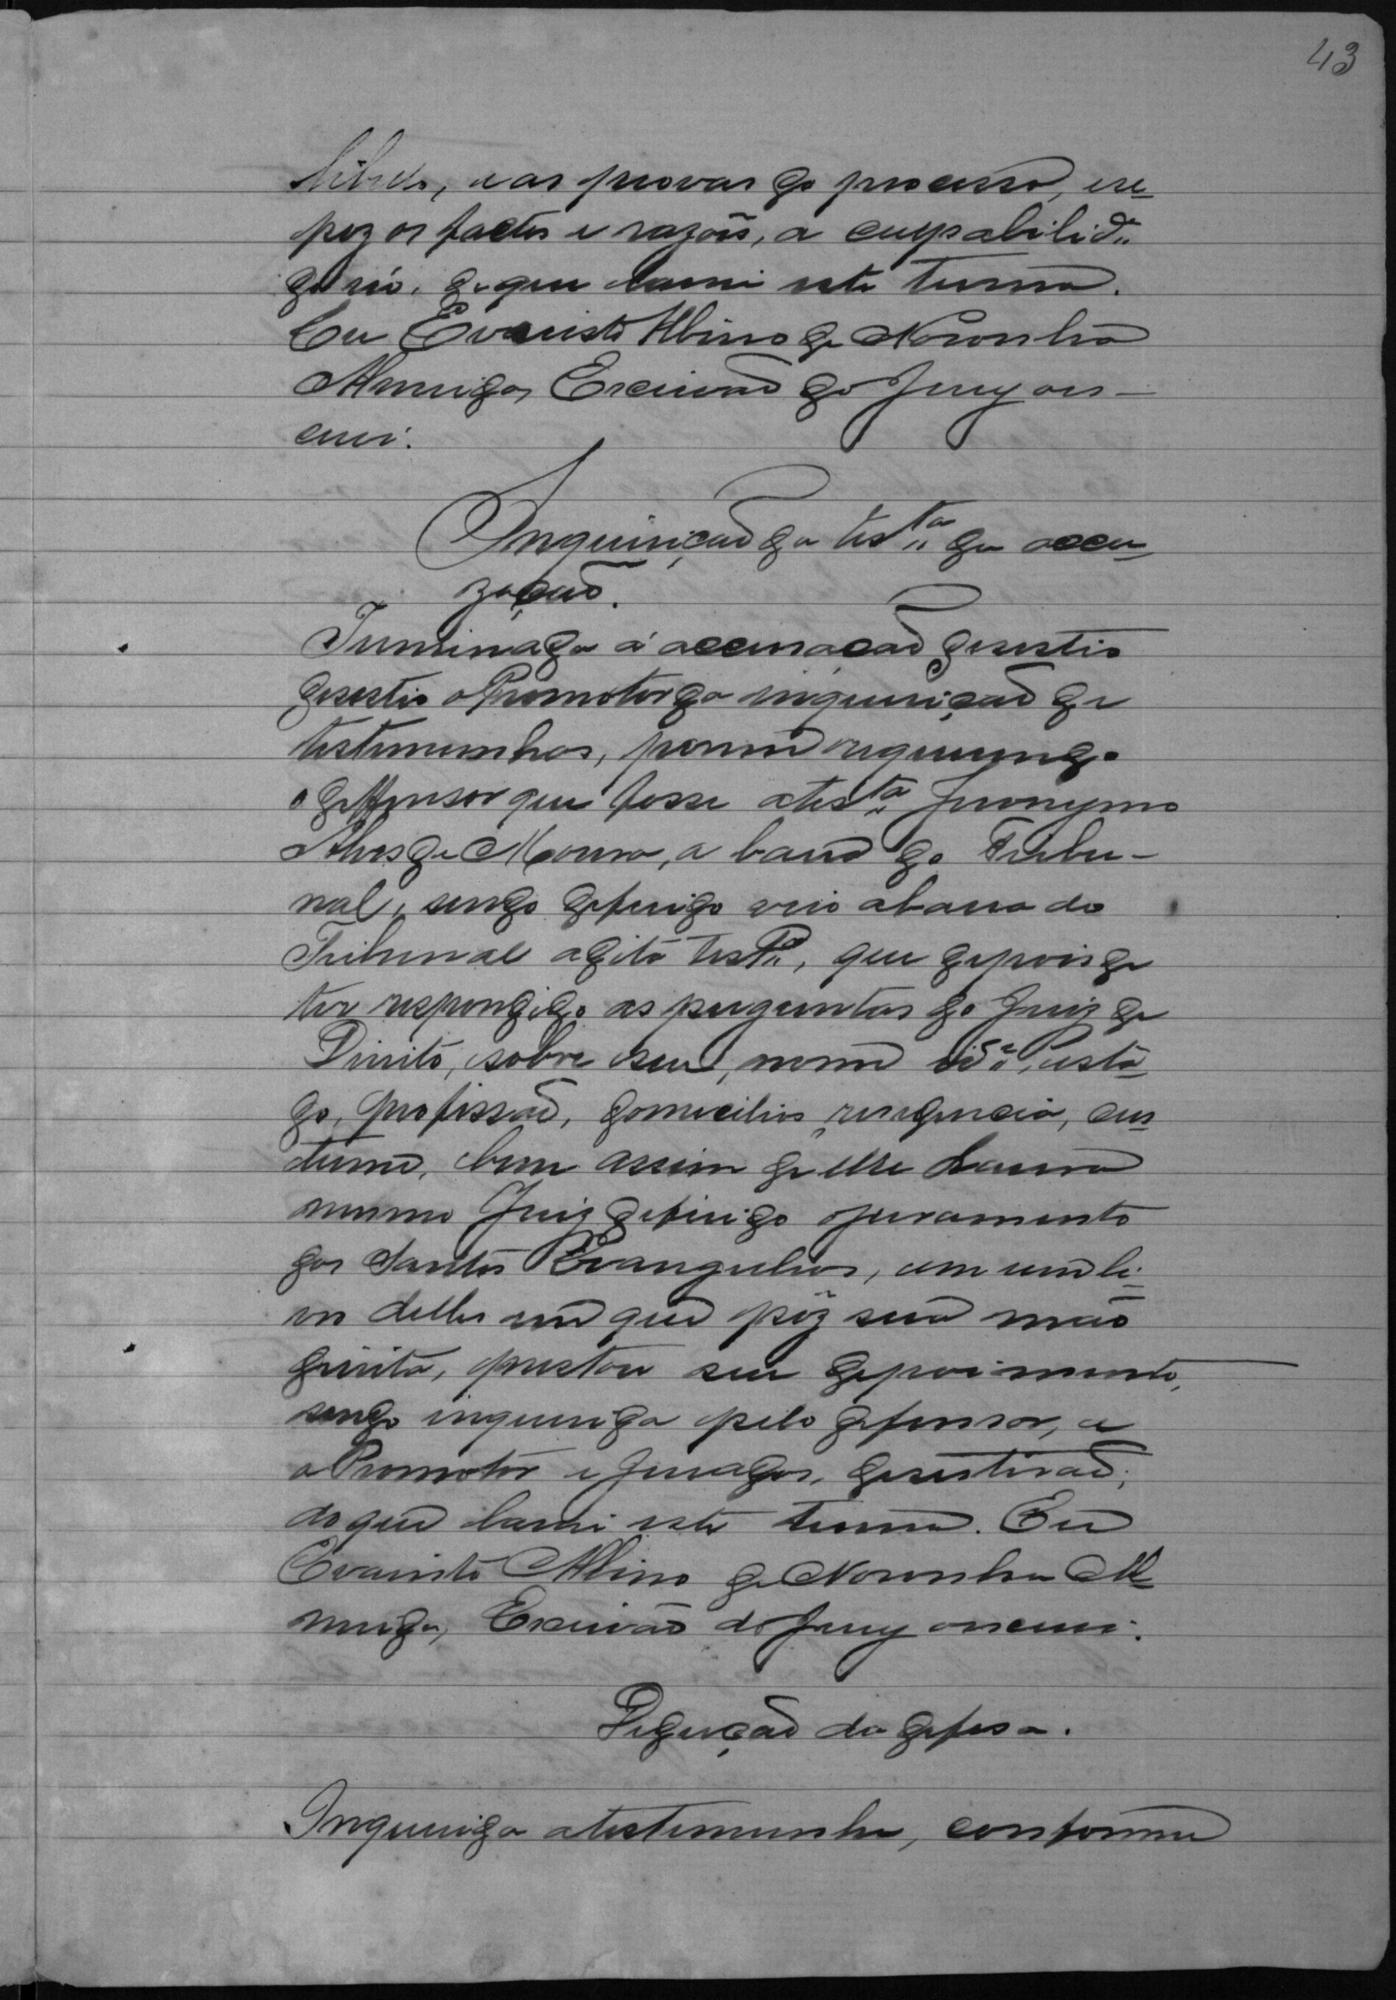 43
libello, e as provas do processo, ex-
poz os factos e razões, a culpabilid.e
do réo, do que lavrei este termo.
Eu Evaristo Albino de Noronha
Almeida, Escrivão do Jury o es-
crevi.
Inquirição da test.ta de accu-
zação.
Terminada a accusação desestio
desestio o Promotor da inquirição de
testemunhas, porem requerendo
o deffensor que fosse a test.ta Jeronymo
Alves de Moura, a barra do Tribu-
nal, sendo deferido veio a barra do
Tribunal a dita test.a, que depois de
ter respondido as perguntas do Juiz de
Direito, sobre seu, nome id.e, esta-
do, profissão, domicilio, residencia, cus-
tume, bem assim de lhe haver o
mesmo Juiz deferido o juramento
dos Santos Evangelhos, em um li-
vro delles em que poz sua mão
direita, prestou seu depoimento,
sendo inquirida pelo defensor, e
o Promotor e jurados, desestirão;
do que lavrei este termo. Eu
Evaristo Albino de Noronha Al-
meida, Escrivão do Jury o escrevi.
Dedução da defesa.
Inquirida a testemunha, conforme